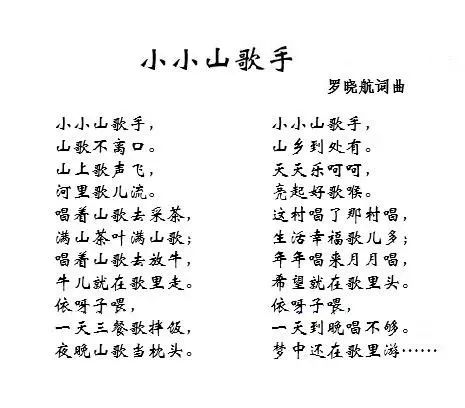 小小山歌手
罗晓航词曲
小小山歌手，
山歌不离口。
山上歌声飞，
河里歌儿流。
唱着山歌去采茶，
满山茶叶满山歌；
唱着山歌去放牛，
牛儿就在歌里走。
依呀子喂，
一天三餐歌拌饭，
夜晚山歌当枕头。
小小山歌手，
山乡到处有。
天天乐呵呵，
亮起好歌喉。
这村唱了那村唱，
生活幸福歌儿多；
年年唱来月月唱，
希望就在歌里头。
依呀子喂，
一天到晚唱不够。
梦中还在歌里游……